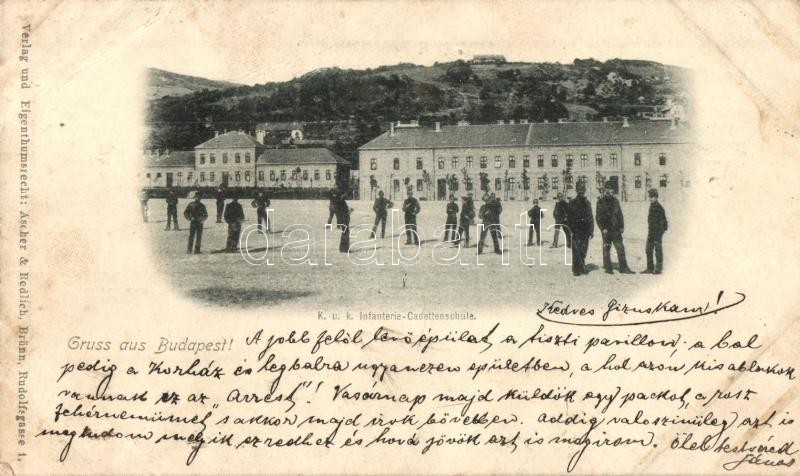 Verlag und Eigenthumsrecht: Ascher & Redlich, Brünn, Rudolfsgasse 1.
darabanth
K. u. k. Infanterie-Cadettenschule.
Gruss aus Budapest!
Kedves Gizuskam!
A jobb felöl levö épület a tiszti pavillon a bal
pedig a Korház és legbalra ugyanezen epületben, a hol azon kis ablakok
vannak ez az "Arrest"! Vasárnap majd küldök egy packot, a rosz
fehérnemümet s akkor majd irok bövebben. Addig valoszinüleg azt is
megtudom melyik ezredhez és hová jövök azt is megirom. Ölel testvéred
János